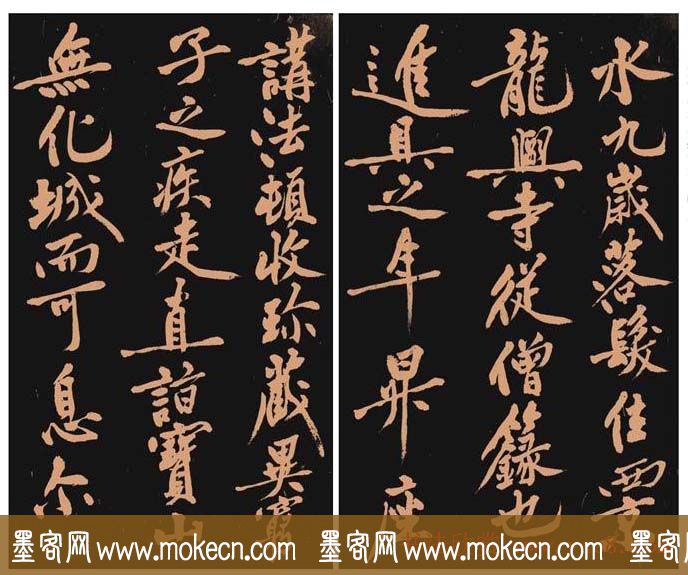 水九歲落髮住西京
龍興寺從僧籙也
進具之年昇座
講法頓收珍藏異窮
子之疾走直詣寶山
無化城而可息尔
墨客网 www.mokecn.com 墨客网 www.mokecn.com